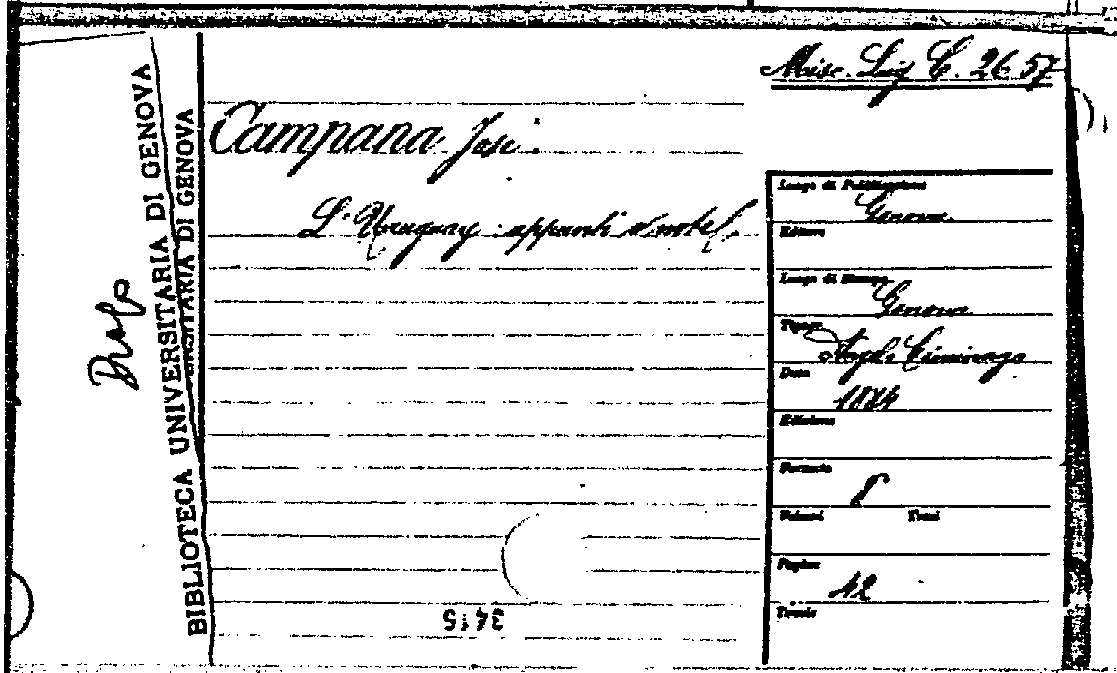 Misc. Lig C. 26.57
Campana José
L'Uruguay : appunti e note.
Luogo di Pubblicazione
Genova
Editore
Luogo di Stampa
Genova
Tipogr.
Angelo Ciminago
Data
1884
Edizione
Formato
8
Volumi Tomi
Pagine
42
Tavole
BIBLIOTECA UNIVERSITARIA DI GENOVA
DI GENOVA
3415